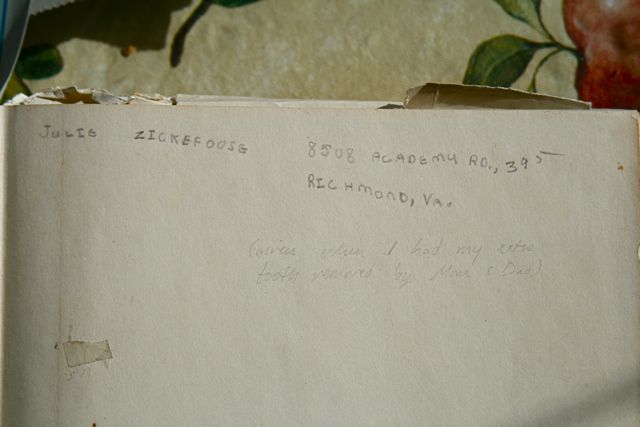 JULIE ZICKEFOOSE 8508 ACADEMY RD., 395
RICHMOND, VA.
(given when I had my extra
tooth removed by Mom & Dad)